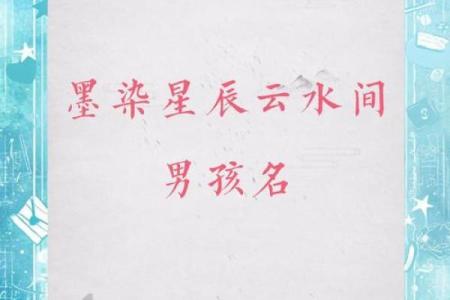 墨染星辰云水间
男孩名